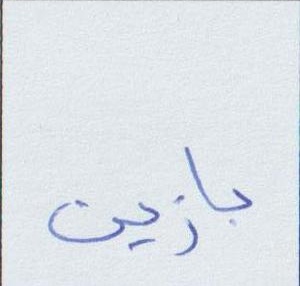 بازین